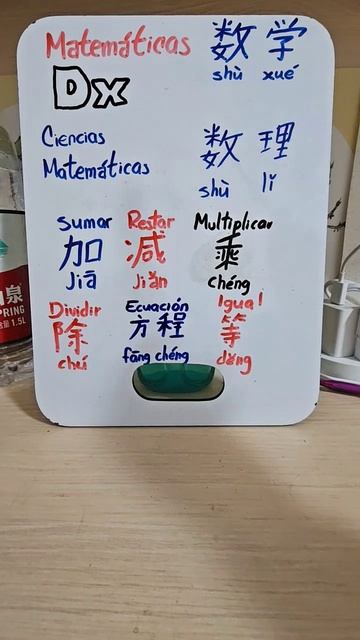 Matemáticas 数学
shù xué
Dx
Ciencias
Matemáticas
数理
shù li
Sumar Restar Multiplicar
加 减 乘
Jiā Jiǎn chéng
Dividir Ecuación Igual
除 方程 等
chú fāng chéng děng
泉
PRING
1.5L